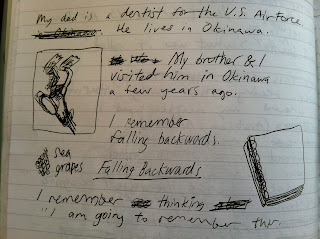 My dad is a dentist for the U.S. Air Force.
He lives in Okinawa.
My brother & I
visited him in Okinawa
a few years ago.
I remember
falling backwards.
Sea
grapes
Falling Backwards
I remember thinking
"I am going to remember this.